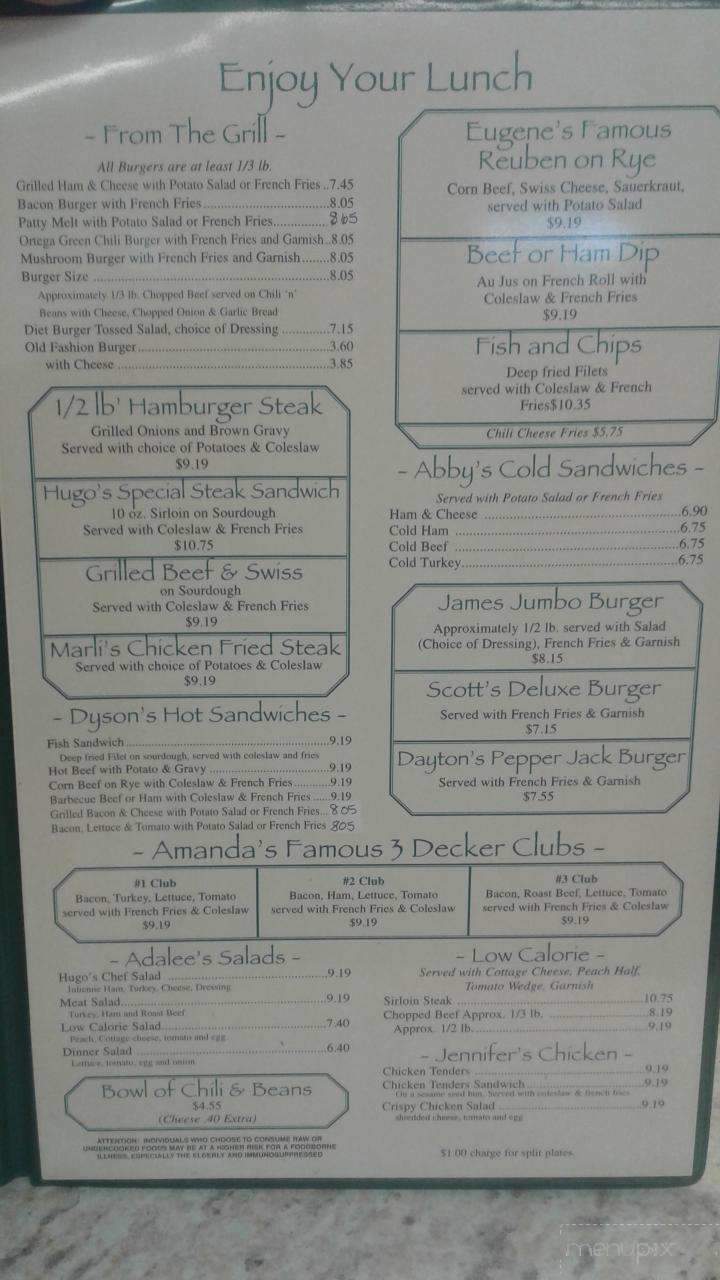 Enjoy Your Lunch
- From The Grill -
All Burgers are at least 1/3 lb.
Grilled Ham & Cheese with Potato Salad or French Fries ..7.45
Bacon Burger with French Fries ..........8.05
Patty Melt with Potato Salad or French Fries..........865
Ortega Green Chili Burger with French Fries and Garnish..8.05
Mushroom Burger with French Fries and Garnish........8.05
Burger Size ..........8.05
Approximately 1/3 lb. Chopped Beef served on Chili 'n'
Beans with Cheese, Chopped Onion & Garlic Bread
Diet Burger Tossed Salad, choice of Dressing ............7.15
Old Fashion Burger..........3.60
with Cheese ..........3.85
1/2 lb' Hamburger Steak
Grilled Onions and Brown Gravy
Served with choice of Potatoes & Coleslaw
$9.19
Hugo's Special Steak Sandwich
10 oz. Sirloin on Sourdough
Served with Coleslaw & French Fries
$10.75
Grilled Beef & Swiss
on Sourdough
Served with Coleslaw & French Fries
$9.19
Marli's Chicken Fried Steak
Served with choice of Potatoes & Coleslaw
$9.19
- Dyson's Hot Sandwiches -
Fish Sandwich..........9.19
Deep fried Filet on sourdough, served with coleslaw and fries
Hot Beef with Potato & Gravy ..........9.19
Corn Beef on Rye with Coleslaw & French Fries ..........9.19
Barbecue Beef or Ham with Coleslaw & French Fries ......9.19
Grilled Bacon & Cheese with Potato Salad or French Fries...805
Bacon, Lettuce & Tomato with Potato Salad or French Fries 805
Eugene's Famous
Reuben on Rye
Corn Beef, Swiss Cheese, Sauerkraut,
served with Potato Salad
$9.19
Beef or Ham Dip
Au Jus on French Roll with
Coleslaw & French Fries
$9.19
Fish and Chips
Deep fried Filets
served with Coleslaw & French
Fries$10.35
Chili Cheese Fries $5.75
- Abby's Cold Sandwiches -
Served with Potato Salad or French Fries
Ham & Cheese ..........6.90
Cold Ham ..........6.75
Cold Beef ..........6.75
Cold Turkey..........6.75
James Jumbo Burger
Approximately 1/2 lb. served with Salad
(Choice of Dressing), French Fries & Garnish
$8.15
Scott's Deluxe Burger
Served with French Fries & Garnish
$7.15
Dayton's Pepper Jack Burger
Served with French Fries & Garnish
$7.55
- Amanda's Famous 3 Decker Clubs -
#1 Club
Bacon, Turkey, Lettuce, Tomato
served with French Fries & Coleslaw
$9.19
#2 Club
Bacon, Ham, Lettuce, Tomato
served with French Fries & Coleslaw
$9.19
#3 Club
Bacon, Roast Beef, Lettuce, Tomato
served with French Fries & Coleslaw
$9.19
- Adalee's Salads -
Hugo's Chef Salad ..........9.19
Julienne Ham, Turkey, Cheese, Dressing
Meat Salad..........9.19
Turkey, Ham and Roast Beef
Low Calorie Salad..........7.40
Peach, Cottage cheese, tomato and egg
Dinner Salad ..........6.40
Lettuce, tomato, egg and onion
Bowl of Chili & Beans
$4.55
(Cheese .40 Extra)
ATTENTION: INDIVIDUALS WHO CHOOSE TO CONSUME RAW OR
UNDERCOOKED FOODS MAY BE AT A HIGHER RISK FOR A FOODBORNE
ILLNESS, ESPECIALLY THE ELDERLY AND IMMUNOSUPPRESSED
- Low Calorie -
Served with Cottage Cheese, Peach Half,
Tomato Wedge, Garnish
Sirloin Steak ..........10.75
Chopped Beef Approx. 1/3 lb. ..........8.19
Approx. 1/2 lb...........9.19
- Jennifer's Chicken -
Chicken Tenders ..........9.19
Chicken Tenders Sandwich..........9.19
On a sesame seed bun. Served with coleslaw & french fries
Crispy Chicken Salad ..........9.19
shredded cheese, tomato and egg
$1.00 charge for split plates.
menupix